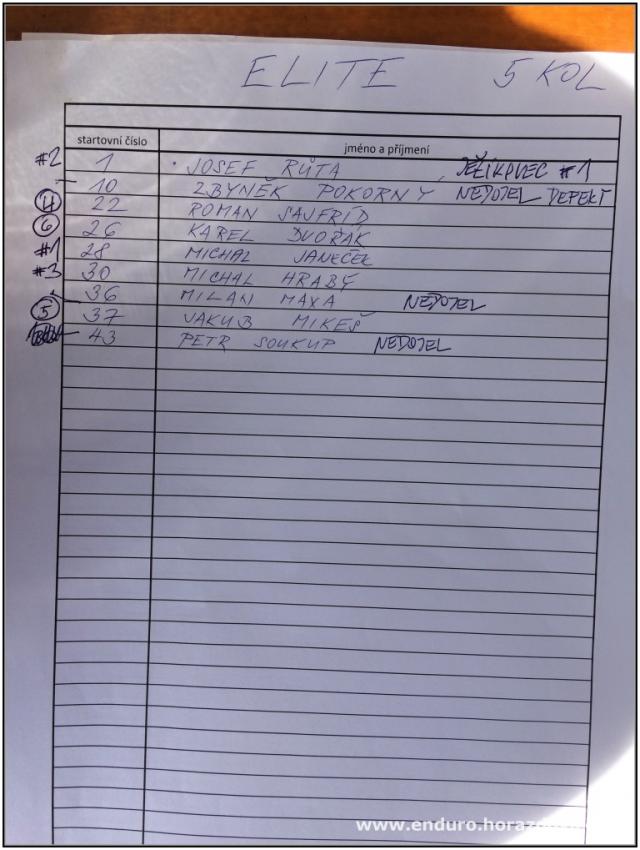 ELITE 5 KOL
startovní číslo jméno a příjmení
#2 1 JOSEF RŮTA JEŽÍKOVEC #1
10 ZBYNĚK POKORNY NEDOJEL DEFEKT
4 22 ROMAN SAJFRÍD
6 26 KAREL DVOŘÁK
#1 28 MICHAL JANEČEK
#3 30 MICHAL HRABÝ
36 MILAN MAXA NEDOJEL
5 37 JAKUB MIKEŠ
43 PETR SOUKUP NEDOJEL
www.enduro.horaz